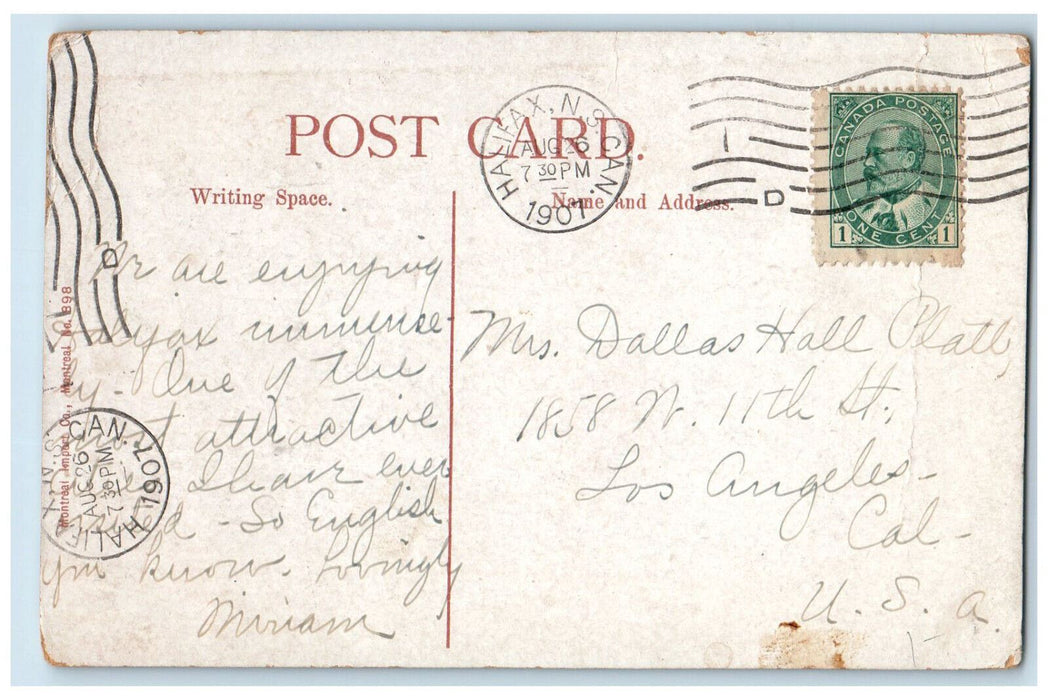 POST CARD.
Writing Space.
Name and Address.
HALIFAX, N.S. CAN.
AUG 26
7 30 PM
1907
D
CANADA POSTAGE
ONE CENT
1 1
We are enjoying
Halifax immense-
ly - One of the
most attractive
cities I have ever
visited - So English
you know. Lovingly
Miriam
Mrs. Dallas Hall Platt,
1858 W. 11th St.
Los Angeles -
Cal -
U. S. a.
Montreal Import Co., Montreal No. 398
HALIFAX, N.S. CAN.
AUG 26
7 30 PM
1907
D